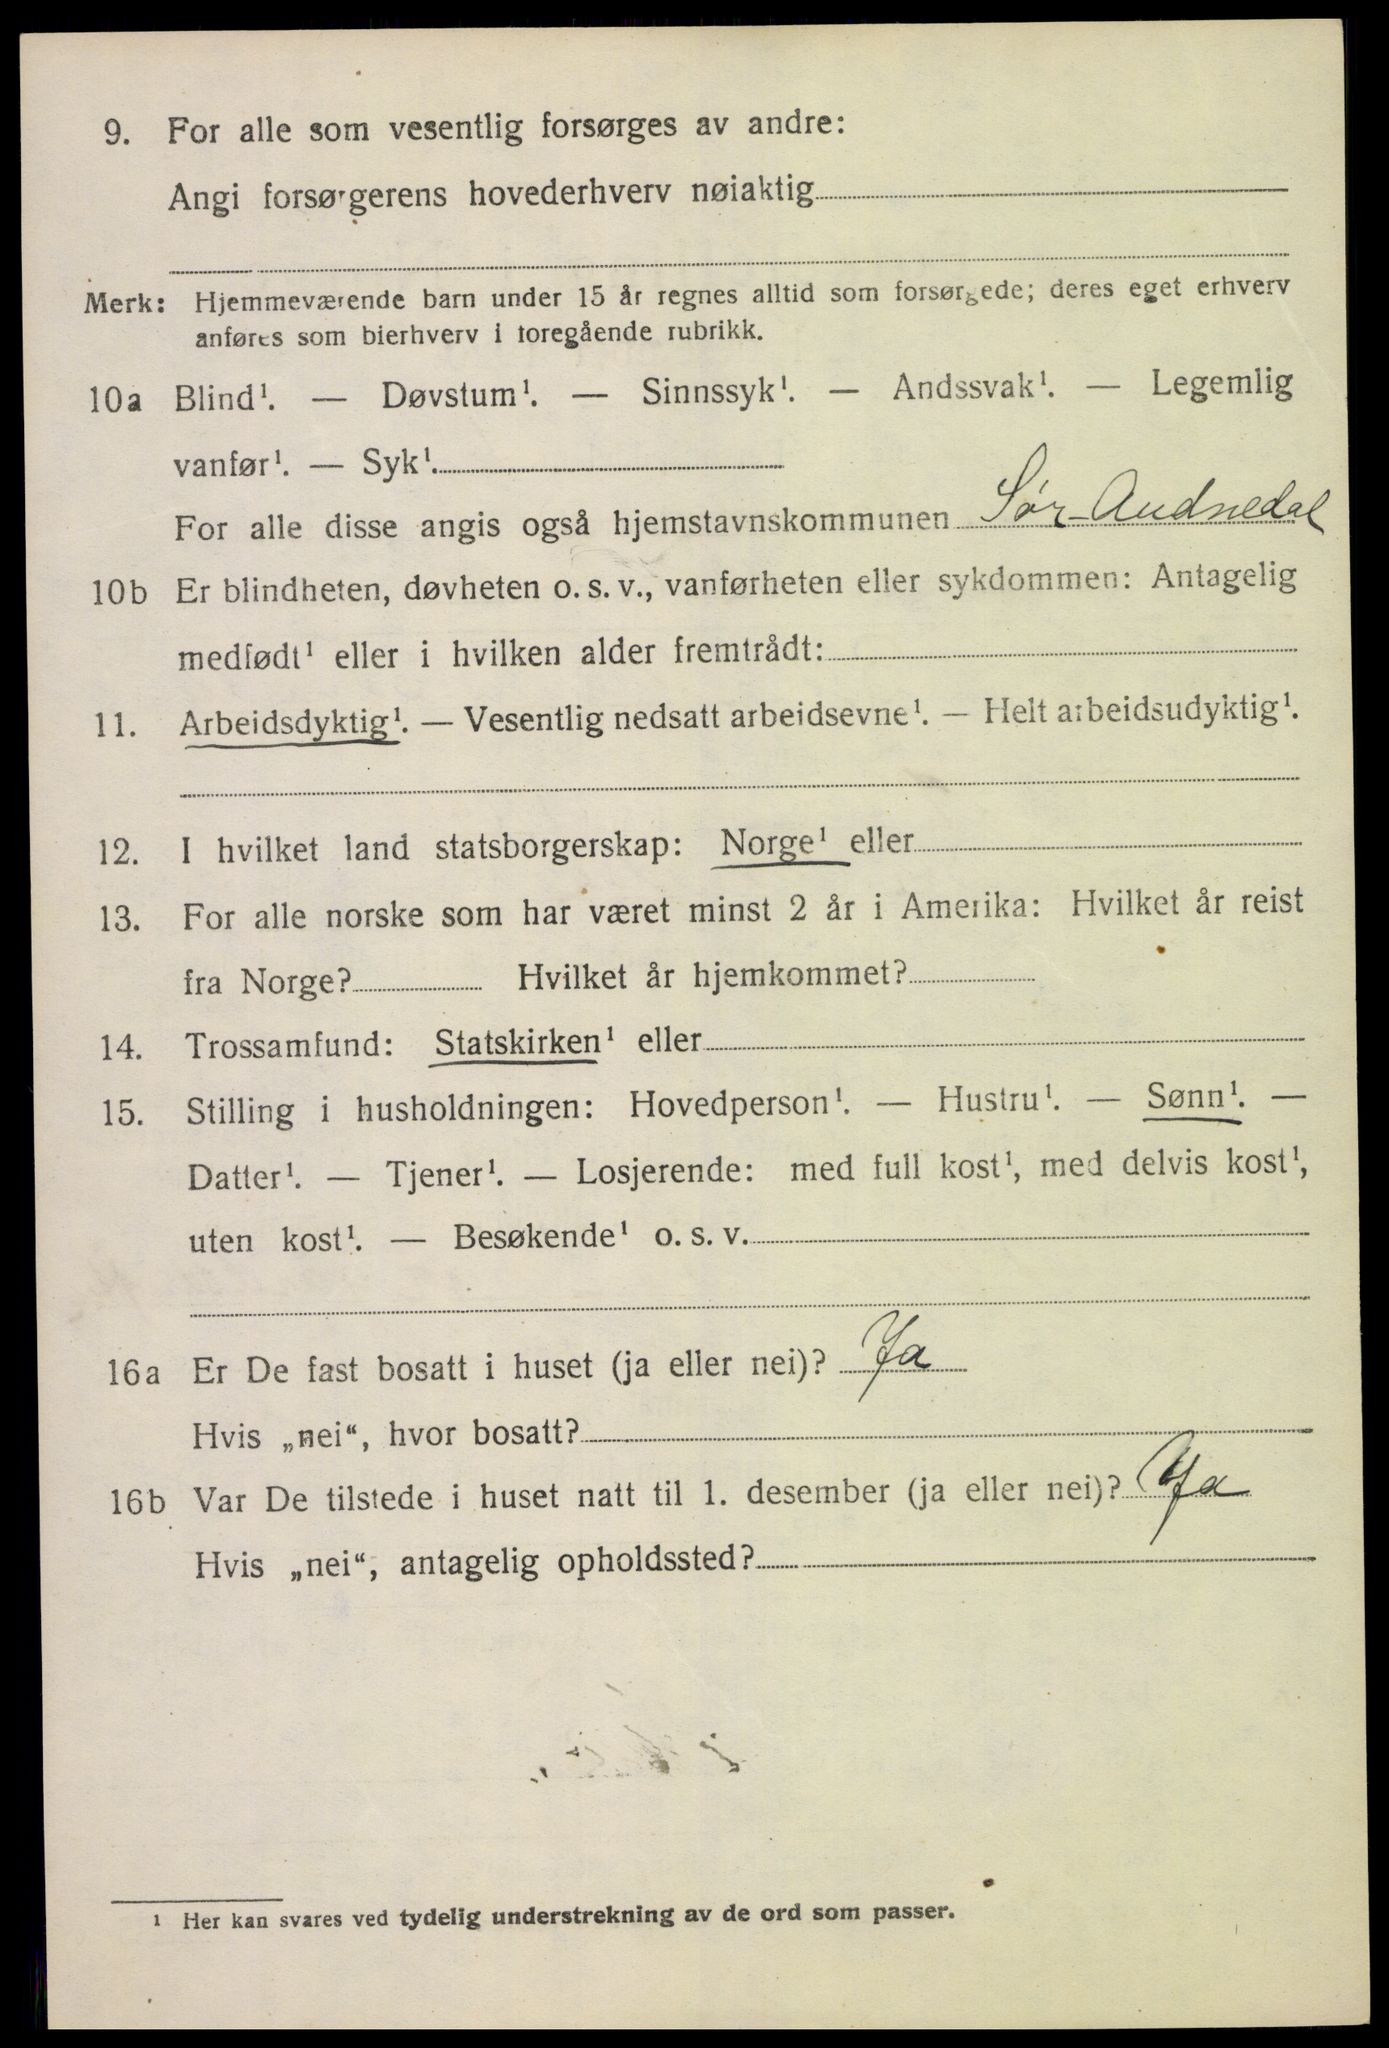 9. For alle som vesentlig forsørges av andre:
Angi forsørgerens hovederhverv nøiaktig
Merk: Hjemmeværende barn under 15 år regnes alltid som forsørgede; deres eget erhverv
anføres som bierhverv i foregående rubrikk.
10a Blind¹. — Døvstum¹. — Sinnssyk¹. — Andssvak¹. — Legemlig
vanfør¹. — Syk¹.
For alle disse angis også hjemstavnskommunen Sør-Audnedal
10b Er blindheten, døvheten o. s. v., vanførheten eller sykdommen: Antagelig
medfødt¹ eller i hvilken alder fremtrådt:
11. Arbeidsdyktig¹. — Vesentlig nedsatt arbeidsevne¹. — Helt arbeidsudyktig¹.
12. I hvilket land statsborgerskap: Norge¹ eller
13. For alle norske som har været minst 2 år i Amerika: Hvilket år reist
fra Norge? Hvilket år hjemkommet?
14. Trossamfund: Statskirken¹ eller
15. Stilling i husholdningen: Hovedperson¹. — Hustru¹. — Sønn¹. —
Datter¹. — Tjener¹. — Losjerende: med full kost¹, med delvis kost¹,
uten kost¹. — Besøkende¹ o. s. v.
16a Er De fast bosatt i huset (ja eller nei)? Ja
Hvis „nei“, hvor bosatt?
16b Var De tilstede i huset natt til 1. desember (ja eller nei)? Ja
Hvis „nei“, antagelig opholdssted?
¹ Her kan svares ved tydelig understrekning av de ord som passer.